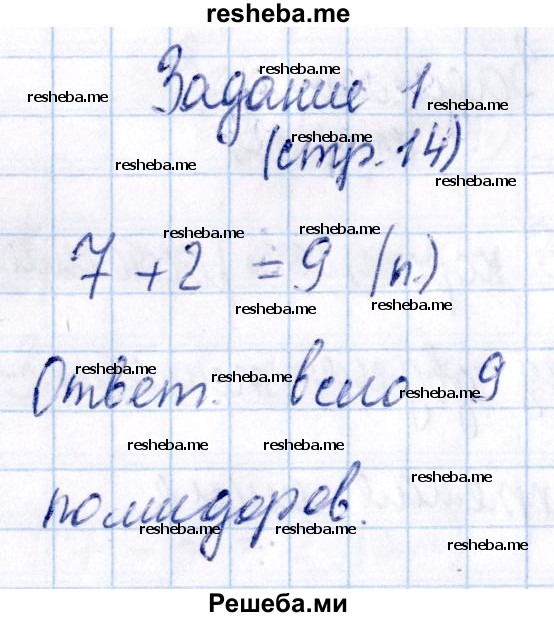 resheba.me
resheba.me
resheba.me
resheba.me
Задание 1
resheba.me
resheba.me
(стр. 14)
resheba.me
resheba.me
resheba.me
7 + 2 = 9 (п.)
resheba.me
resheba.me
resheba.me
resheba.me
resheba.me
Ответ. всего 9
resheba.me
resheba.me
resheba.me
помидоров.
resheba.me
resheba.me
resheba.me
Решеба.ми